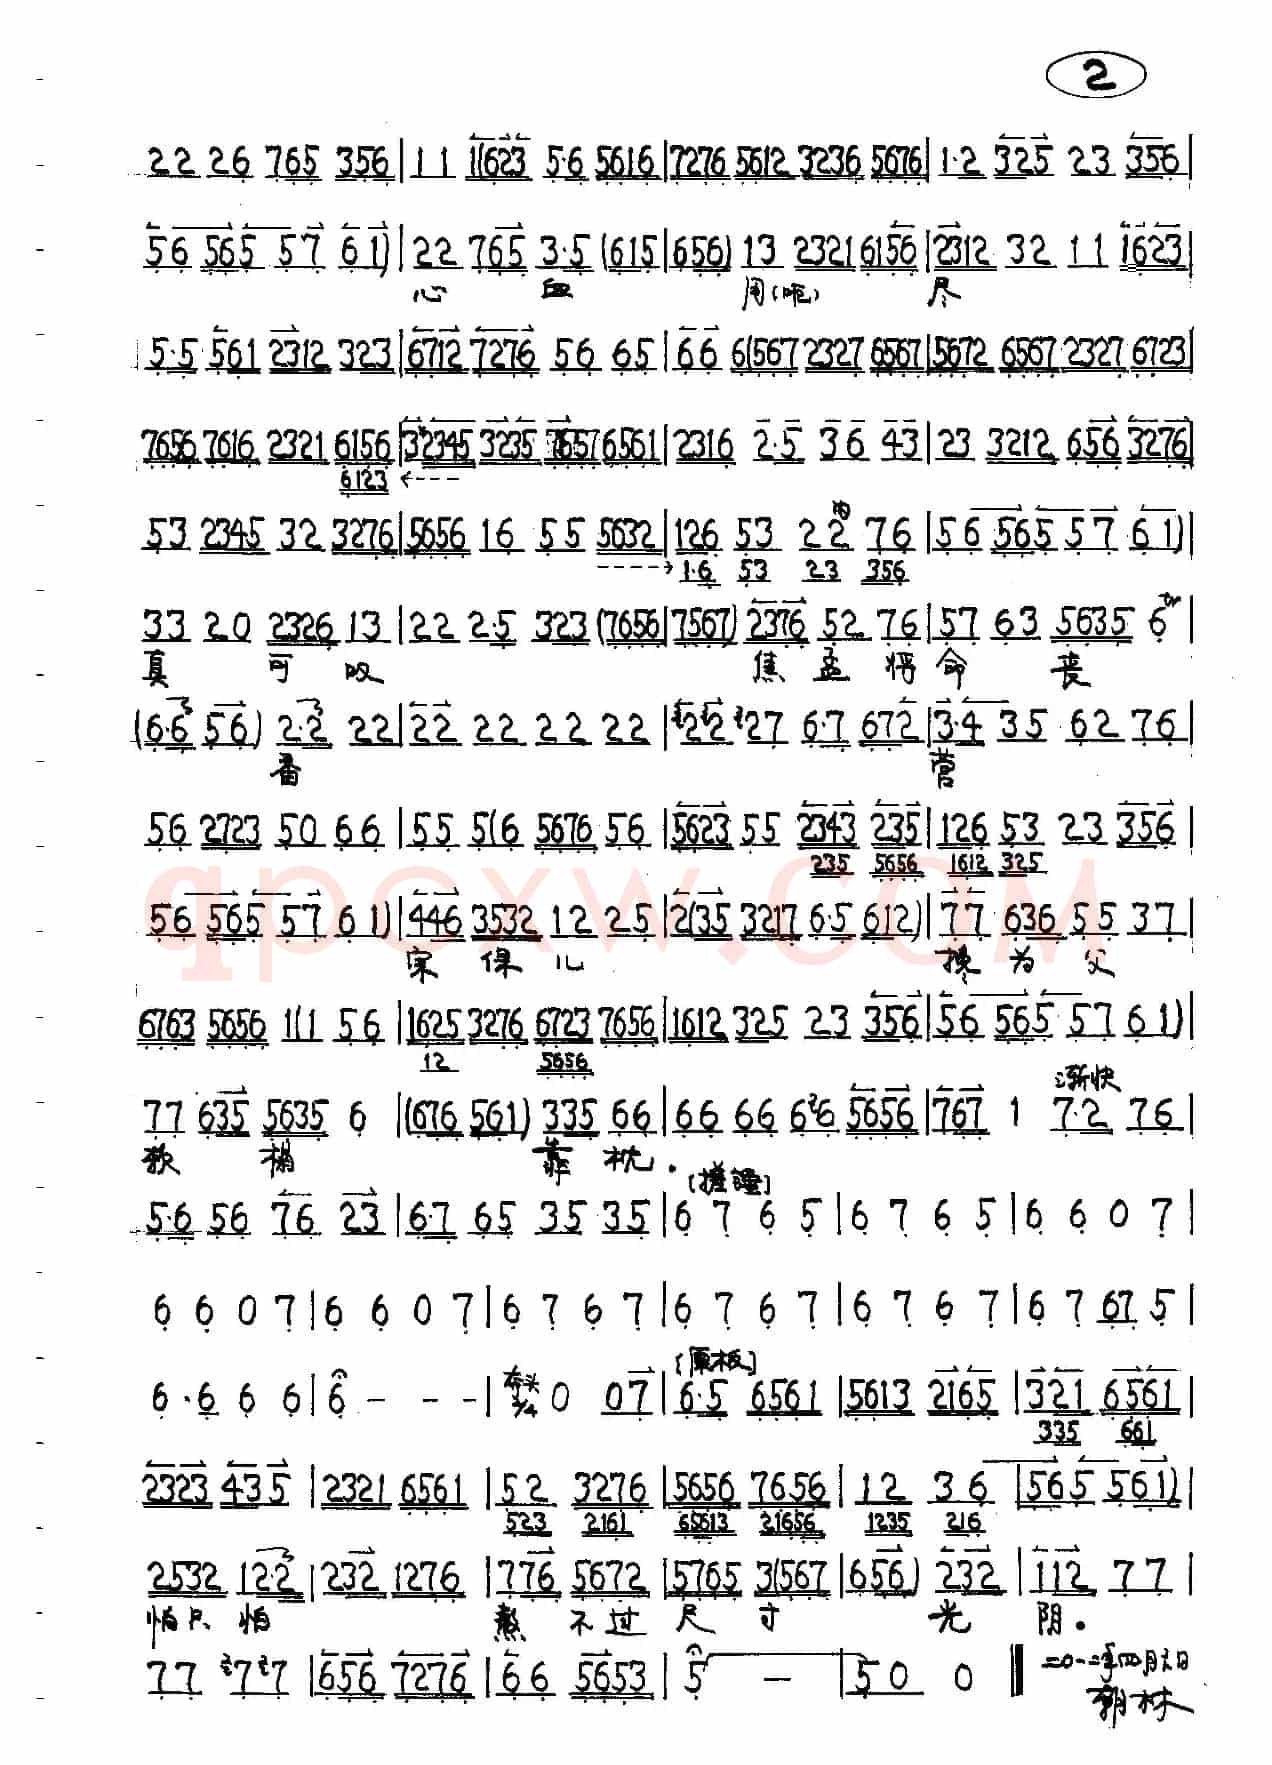 2
22 26 765 356 | 11 1(623 5·6 5616 | 7276 5612 3236 5676 | 1·2 325 23 356 |
56 565 57 61) | 22 765 3·5 (615 | 656) 13 2321 6156 | 2312 32 11 1623 |
心 血 用(呃) 尽
5·5 561 2312 323 | 6712 7276 56 65 | 66 6(567 2327 6567 | 5672 6567 2327 6723 |
7656 7616 2321 6156 | 32345 3235 7657 6561 | 2316 2·5 36 43 | 23 3212 656 3276 |
6123
53 2345 32 3276 | 5656 16 55 5632 | 126 53 22 76 | 56 565 57 61) |
1·6 53 23 356
33 20 2326 13 | 22 2·5 323 (7656 | 7567) 2376 52 76 | 57 63 5635 6 tr |
真 可 叹 焦 孟 将 命 丧
(6·6 56) 2·2 22 | 22 22 22 22 | 22 27 6·7 672 | 3·4 35 62 76 |
番 营
56 2723 50 66 | 55 5(6 5676 56 | 5623 55 2343 235 | 126 53 23 356 |
235 5656 1612 325
qpcxw.com
56 565 57 61) | 446 3532 12 25 | 2(35 3217 6·5 612) | 77 636 55 37 |
宗 保 儿 搀 为 父
6763 5656 1(1 56 | 1625 3276 6723 7656 | 1612 325 23 356 | 56 565 57 61) |
12 5656
渐快
77 635 5635 6 | (676 561) 335 66 | 66 66 66 5656 | 767 1 7·2 76 |
软 榻 靠 枕.
[搓锤]
5·6 56 76 23 | 6·7 65 35 35 | 6 7 6 5 | 6 7 6 5 | 6 6 0 7 |
6 6 0 7 | 6 6 0 7 | 6 7 6 7 | 6 7 6 7 | 6 7 6 7 | 6 7 67 5 |
[原板]
6·6 6 6 | 6 - - - | 2/4 0 07 | 6·5 6561 | 5613 2165 | 321 6561 |
335 661
2323 435 | 2321 6561 | 52 3276 | 5656 7656 | 12 36 | 565 561) |
523 2161 65613 21656 1235 216
2532 12·2 | 232 1276 | 776 5672 | 5765 3(567 | 656) 232 | 112 77 |
怕只 怕 熬 不 过 尺 寸 光 阴.
77 77 | 656 7276 | 66 5653 | 5 - | 50 0 ‖